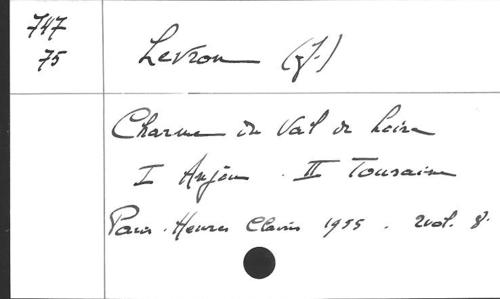 747
75
Levron (J.)
Charme du Val de Loire
I Anjou . II Touraine
Paris . Heures Claires 1955 . 2 vol. 8°